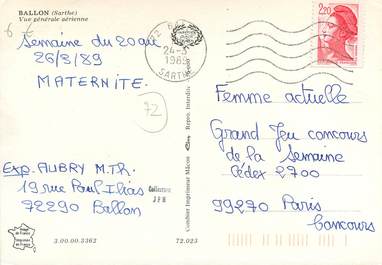 BALLON (Sarthe)
Vue générale aérienne
Semaine du 20 au
26/8/89
MATERNITE.
72
Exp. AUBRY M.TH.
19 rue Paul Ilias
72290 Ballon
Collections
J P H
3.00.00.3362
72.023
Combier Imprimeur Mâcon
Repro. Interdite
24-8
1989
SARTHE
2,20
Femme actuelle
Grand Jeu concours
de la Semaine
Cédex 2700
99270 Paris
Concours